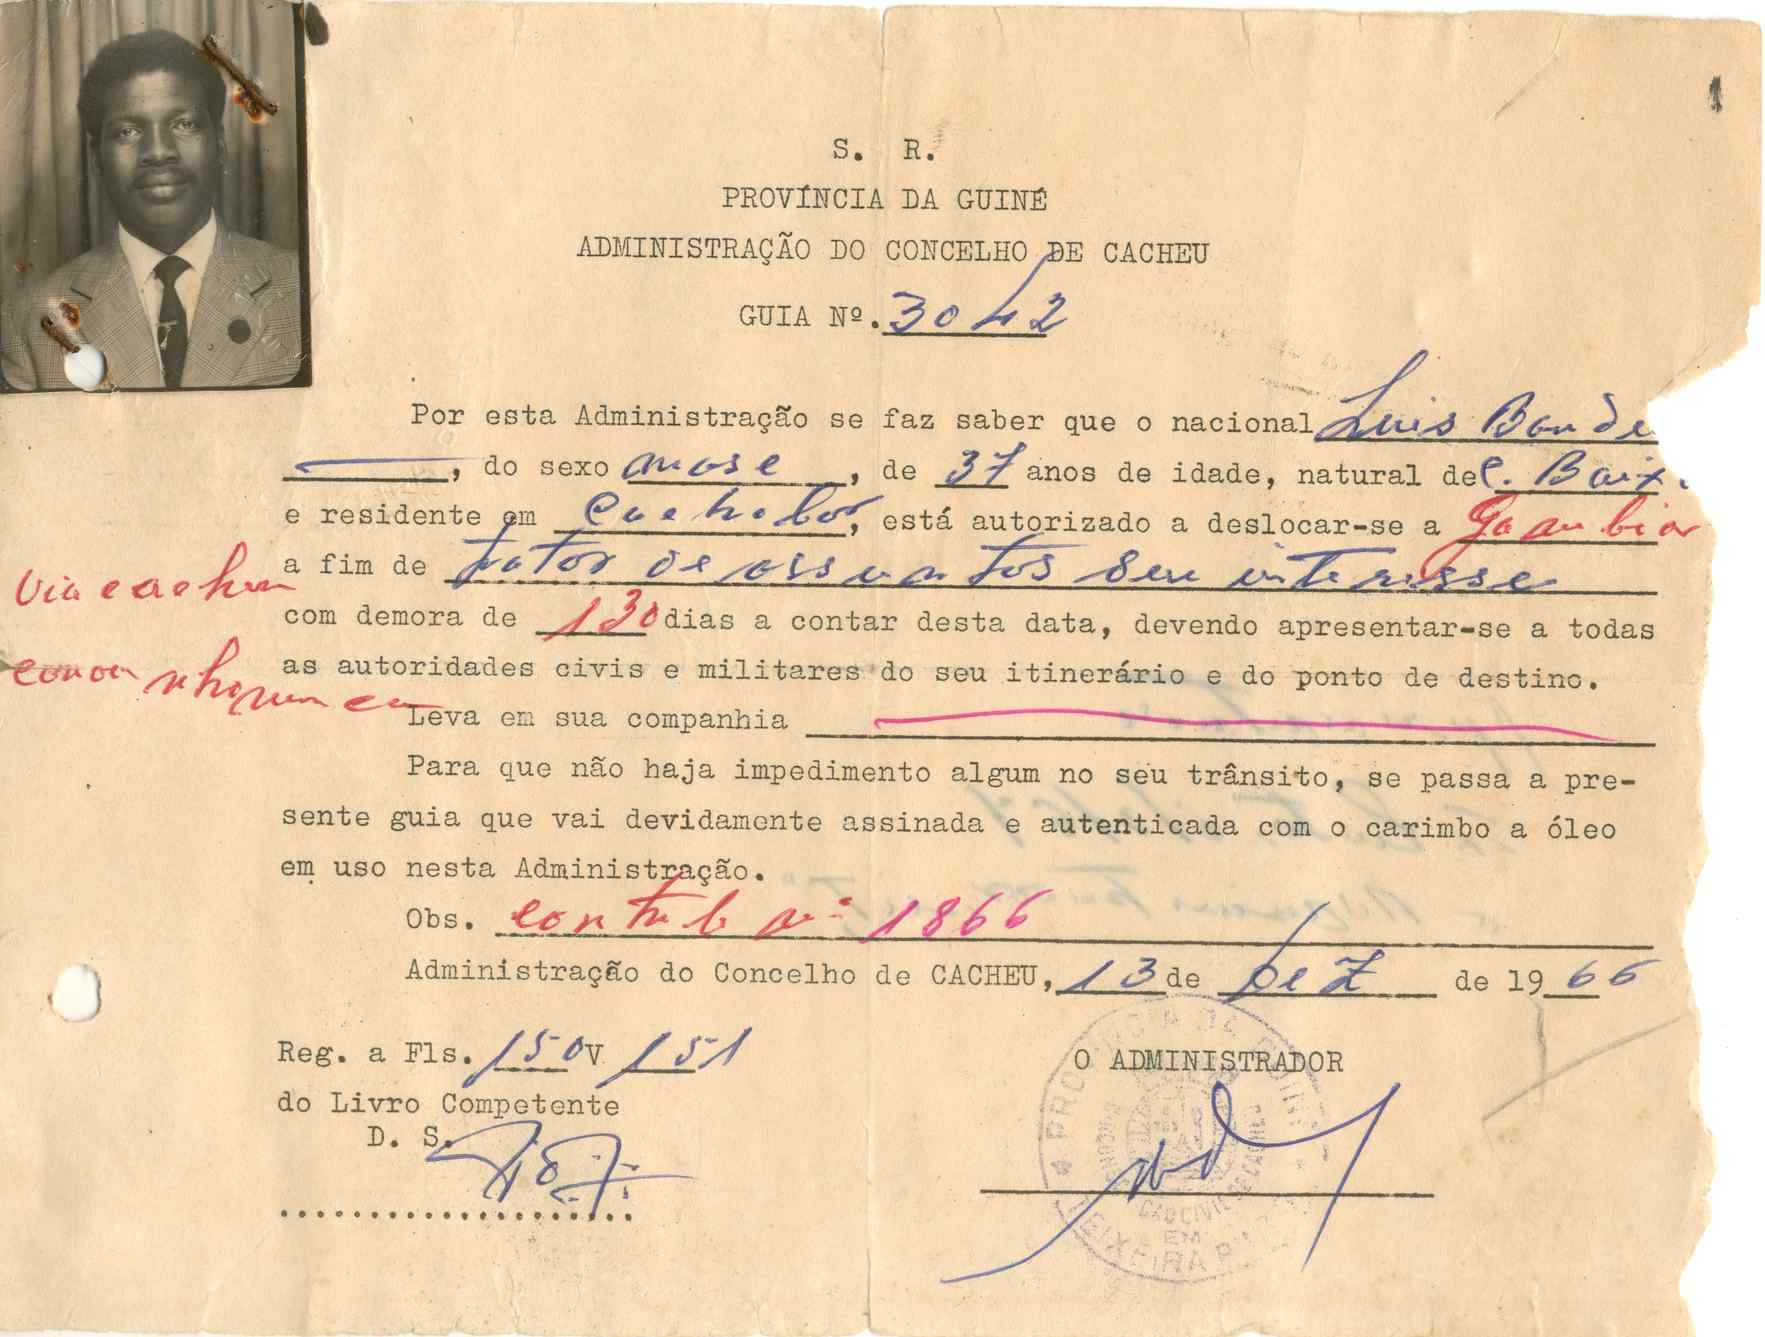 S. R.
PROVÍNCIA DA GUINÉ
ADMINISTRAÇÃO DO CONCELHO DE CACHEU
GUIA Nº. 3042
Por esta Administração se faz saber que o nacional Luis Bande
, do sexo masc , de 37 anos de idade, natural de C. Baix
e residente em , está autorizado a deslocar-se a Gambia
a fim de tratar de assuntos seu interesse
Via cacheu
com demora de 130 dias a contar desta data, devendo apresentar-se a todas
as autoridades civis e militares do seu itinerário e do ponto de destino.
Leva em sua companhia
Para que não haja impedimento algum no seu trânsito, se passa a pre-
sente guia que vai devidamente assinada e autenticada com o carimbo a óleo
em uso nesta Administração.
Obs. contrib nº 1866
Administração do Concelho de CACHEU, 13 de Dez de 1966
Reg. a Fls. 150 V 151
O ADMINISTRADOR
do Livro Competente
D. S.
PROVINCIA DA GUINÉ
TEIXEIRA PINTO